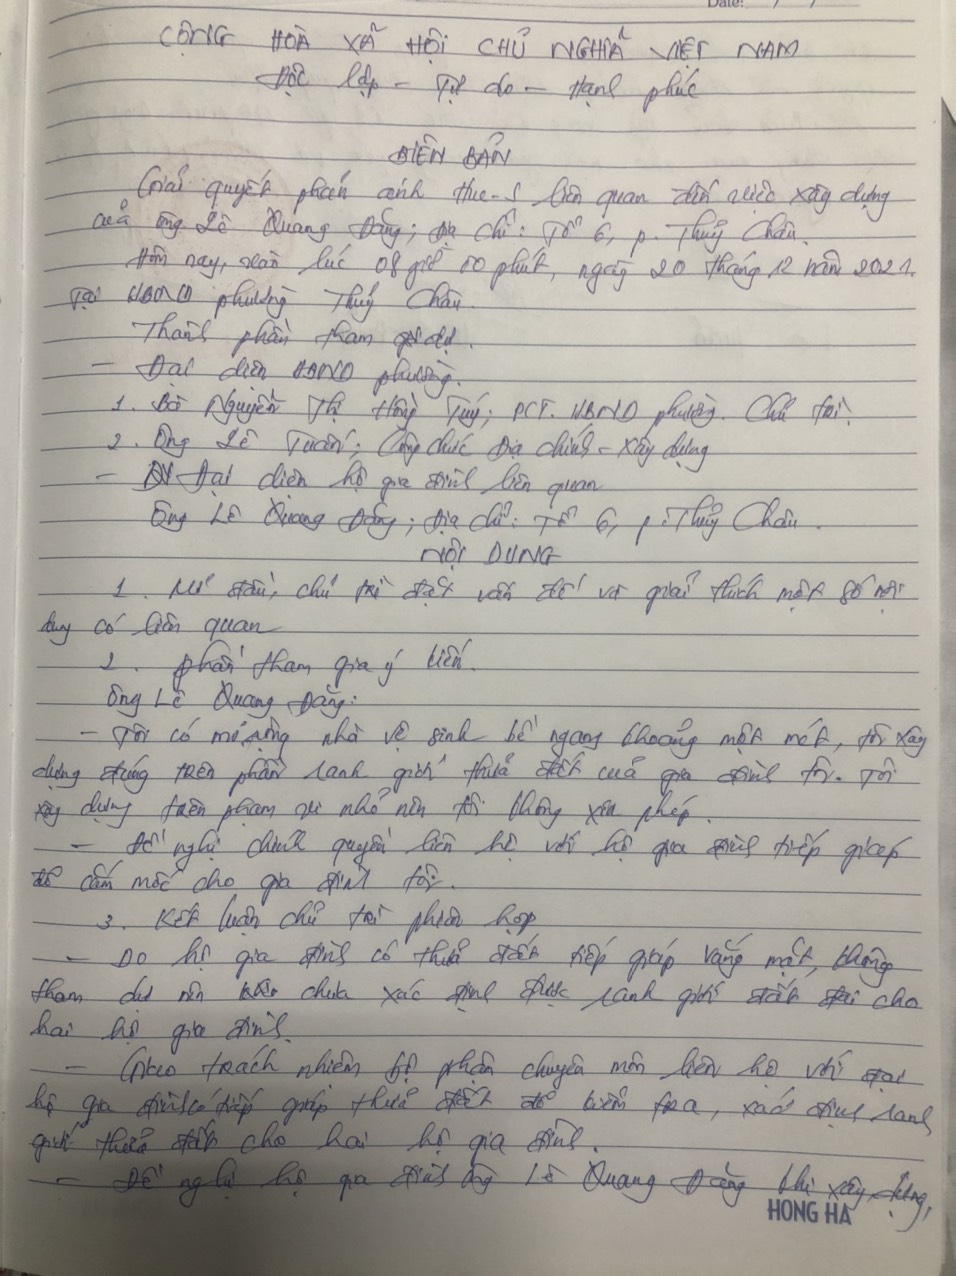 Date: / /
CỘNG HOÀ XÃ HỘI CHỦ NGHĨA VIỆT NAM
Độc lập - Tự do - Hạnh phúc
BIÊN BẢN
Giải quyết phản ánh Hue-S liên quan đến việc xây dựng
của ông Lê Quang Đăng; địa chỉ: Tổ 6, p. Thuỷ Châu.
Hôm nay, vào lúc 08 giờ 00 phút, ngày 20 tháng 12 năm 2021.
Tại UBND phường Thuỷ Châu.
Thành phần tham dự.
- Đại diện UBND phường.
1. Bà Nguyễn Thị Hồng Tuý; PCT. UBND phường. Chủ trì.
2. Ông Lê Tuấn; Công chức Địa chính - Xây dựng
- Đại diện hộ gia đình liên quan
Ông Lê Quang Đăng; Địa chỉ: Tổ 6, p. Thuỷ Châu.
NỘI DUNG
1. Mở đầu, chủ trì đặt vấn đề và giải thích một số nội
dung có liên quan
2. phần tham gia ý kiến.
Ông Lê Quang Đăng:
- Tôi có mở rộng nhà vệ sinh bề ngang khoảng một mét, tôi xây
dựng đúng trên phần ranh giới thửa đất của gia đình tôi. Tôi
xây dựng trên phạm vi nhỏ nên tôi không xin phép.
- Đề nghị chính quyền liên hệ với hộ gia đình tiếp giáp
để cắm mốc cho gia đình tôi.
3. Kết luận chủ trì phiên họp
- Do hộ gia đình có thửa đất tiếp giáp vắng mặt, không
tham dự nên chưa xác định được ranh giới đất đai cho
hai hộ gia đình.
- Giao trách nhiệm bộ phận chuyên môn liên hệ với
hộ gia đình có tiếp giáp thửa đất để kiểm tra, xác định ranh
giới thửa đất cho hai hộ gia đình.
- Đề nghị hộ gia đình ông Lê Quang Đăng khi xây dựng,
HONG HA